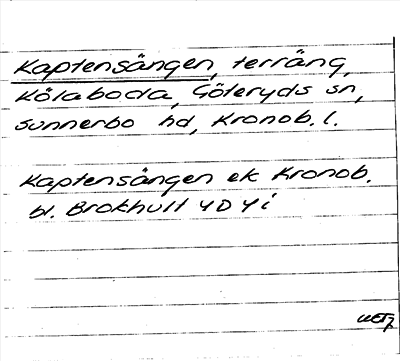 Kaptensängen, terräng,
Kölaboda, Göteryds sn,
Sunnerbo hd, Kronob. l.
Kaptensängen ek Kronob.
bl. Brokhult 4D 4i